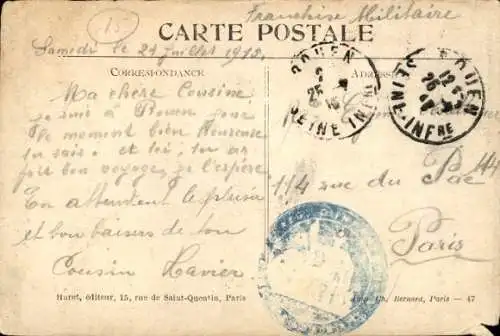 15
Franchise Militaire
CARTE POSTALE
Samedi le 21 Juillet 1915.
CORRESPONDANCE
ROUEN
25
SEINE INFRE
ROUEN
12
25
SEINE-INFRE
Ma chère Cousine
je suis à Rouen pour
le moment bien heureuse
tu sais. et toi, tu as
fait bon voyage, je l'espère
En attendant le plaisir
et bon baisers de ton
Cousin Xavier
114 rue du Bac
Paris
Huret, éditeur, 15, rue de Saint-Quentin, Paris
Imp. Ch. Bernard, Paris — 47